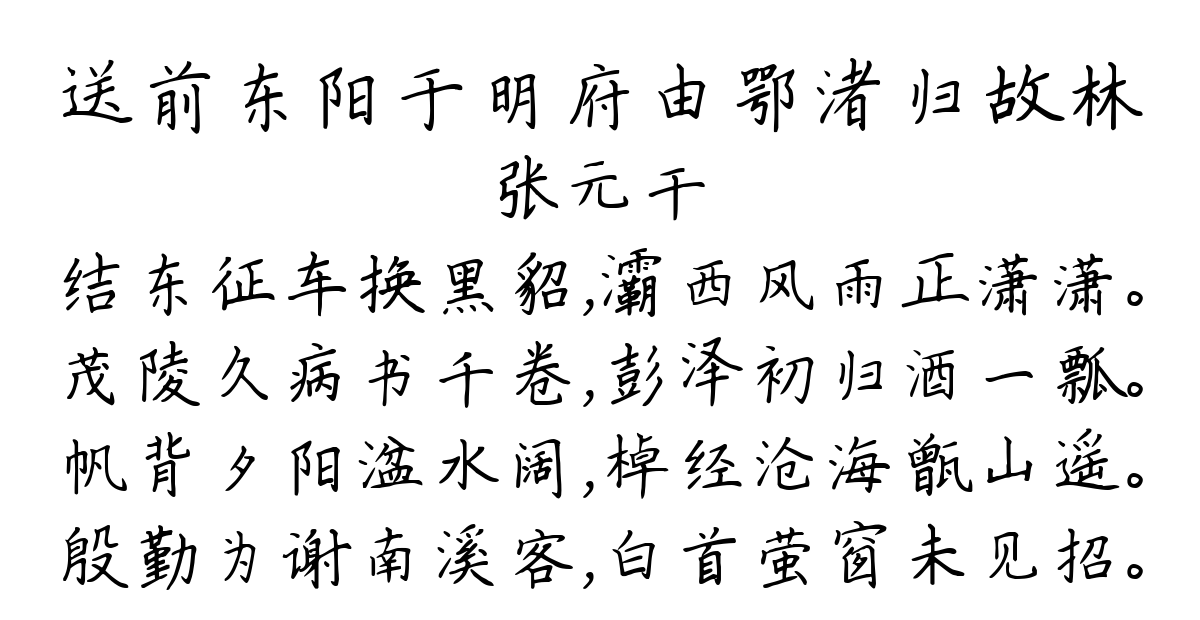 送前东阳于明府由鄂渚归故林
张元干
结东征车换黑貂,灞西风雨正潇潇。
茂陵久病书千卷,彭泽初归酒一瓢。
帆背夕阳湓水阔,棹经沧海甑山遥。
殷勤为谢南溪客,白首萤窗未见招。